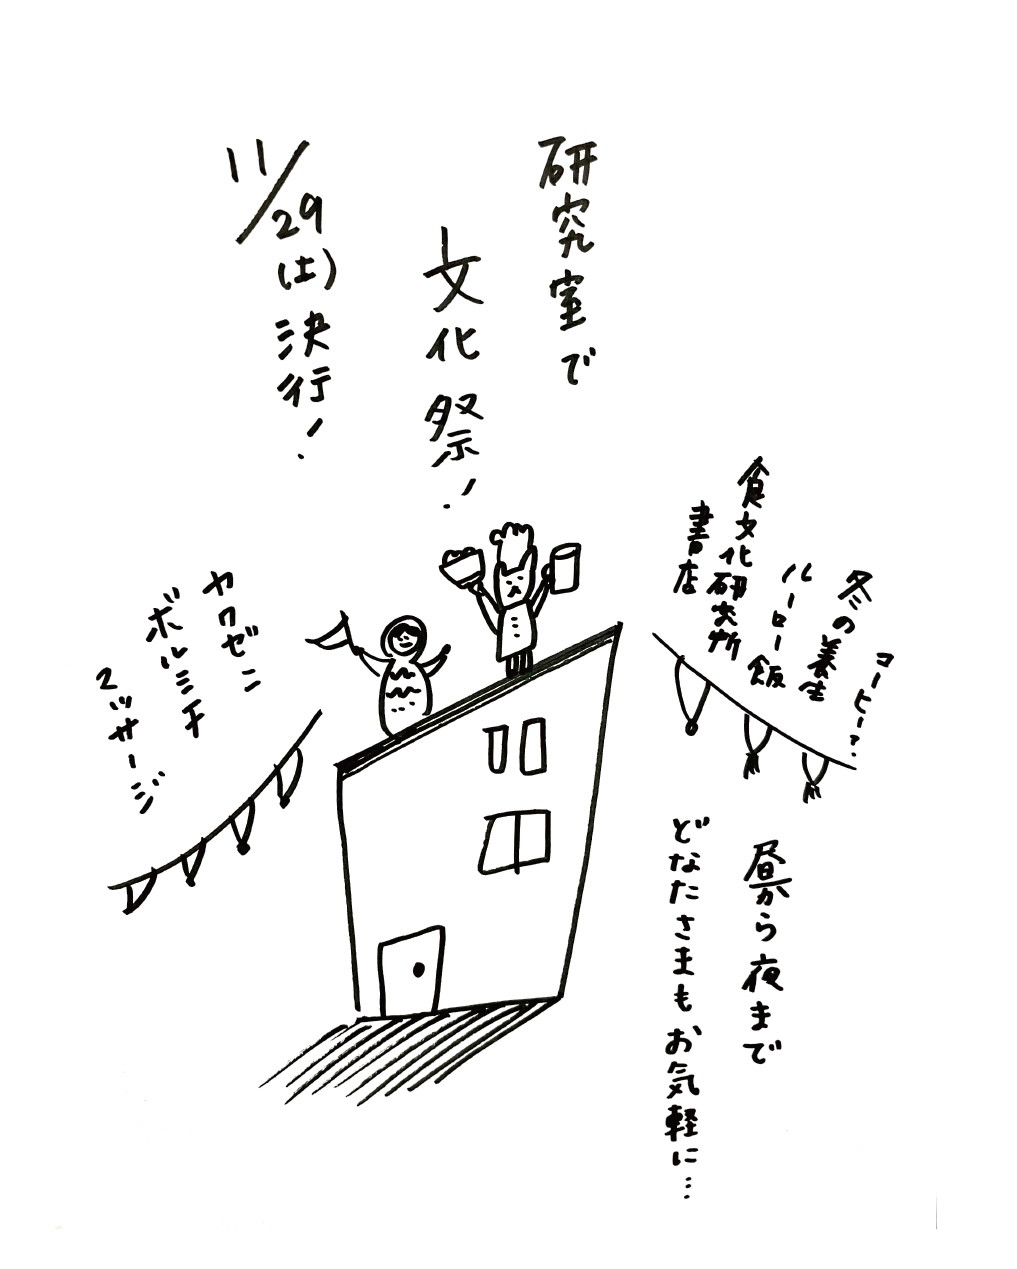 研究室で
文化祭！
11/29(土)決行！
コーヒー？
冬の養生
ルーロー飯
食文化研究所
書店
ヤクゼン
ボルシチ
マッサージ
昼から夜まで
どなたさまもお気軽に…